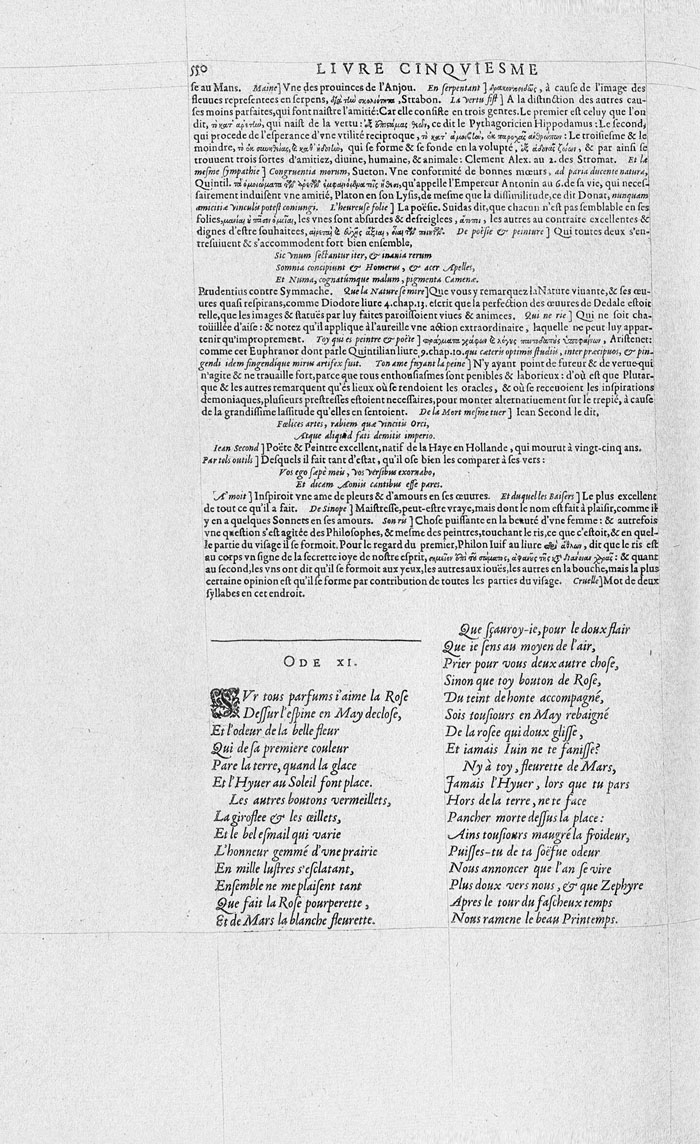 550 LIVRE CINQVIESME
se au Mans. Maine] Vne des prouinces de l'Anjou. En serpentant] , à cause de l'image des
fleuues representees en serpens, , Strabon. La vertu fist] A la distinction des autres cau-
ses moins parfaites, qui font naistre l'amitié: Car elle consiste en trois gentes. Le premier est celuy que l'on
dit, , qui naist de la vertu: , ce dit le Pythagoricien Hippodamus: Le second,
qui procede de l'esperance d'vne vtilité reciproque, : Le troisiesme & le
moindre, , qui se forme & se fonde en la volupté, , & par ainsi se
trouuent trois sortes d'amitiez, diuine, humaine, & animale: Clement Alex. au 2. des Stromat. Et la
mesme sympathie] Congruentia morum, Sueton. Vne conformité de bonnes mœurs, ad paria ducente natura,
Quintil. qu'appelle l'Empereur Antonin au 6. de sa vie, qui neces-
sairement induisent vne amitié, Platon en son Lysis, de mesme que la dissimilitude, ce dit Donat, nunquam
amicitia vinculis potest coniungi. L'heureuse folie] La poësie. Suidas dit, que chacun n'est pas semblable en ses
folies, , les vnes sont absurdes & desreiglees, , les autres au contraire excellentes &
dignes d'estre souhaitees, . De poësie & peinture] Qui toutes deux s'en-
tresuiuent & s'accommodent fort bien ensemble,
Sic vnum sectantur iter, & inania rerum
Somnia concipiunt & Homerus, & acer Apelles,
Et Numa, cognatúmque malum, pigmenta Camenæ.
Prudentius contre Symmache. Que la Nature se mire] Que vous y remarquez la Nature viuante, & ses œu-
ures quasi respirans, comme Diodore liure 4. chap. 13. escrit que la perfection des œuures de Dedale estoit
telle, que les images & statuës par luy faites paroissoient viues & animees. Qui ne rie] Qui ne soit cha-
touïllee d'aise: & notez qu'il applique à l'aureille vne action extraordinaire, laquelle ne peut luy appar-
tenir qu'improprement. Toy qui es peintre & poëte] , Aristenet:
comme cet Euphranor dont parle Quintilian liure 9. chap. 10. qui cæteris optimis studiis, inter præcipuos, & pin-
gendi idem fingendique mirus artifex fuit. Ton ame fuyant la peine] N'y ayant point de fureur & de verue qui
n'agite & ne trauaille fort, parce que tous enthousiasmes sont penibles & laborieux: d'où est que Plutar-
que & les autres remarquent qu'és lieux où se rendoient les oracles, & où se receuoient les inspirations
demoniaques, plusieurs prestresses estoient necessaires, pour monter alternatiuement sur le trepié, à cause
de la grandissime lassitude qu'elles en sentoient. De la Mort mesme tuer] Iean Second le dit,
Fœlices artes, rabiem quæ vincitis Orci,
Atque aliquid fati demitis imperio.
Iean Second] Poëte & Peintre excellent, natif de la Haye en Hollande, qui mourut à vingt-cinq ans.
Par tels outils] Desquels il fait tant d'estat, qu'il ose bien les comparer à ses vers:
Vos ego sæpè meu, vos versibus exornabo,
Et dicam Aoniis cantibus esse pares.
A'moit] Inspiroit vne ame de pleurs & d'amours en ses œuures. Et duquel les Baisers] Le plus excellent
de tout ce qu'il a fait. De Sinope] Maistresse, peut-estre vraye, mais dont le nom est fait à plaisir, comme il
y en a quelques Sonnets en ses amours. Son ris] Chose puissante en la beauté d'vne femme: & autrefois
vne question s'est agitée des Philosophes, & mesme des peintres, touchant le ris, ce que c'estoit, & en quel-
le partie du visage il se formoit. Pour le regard du premier, Philon Iuif au liure , dit que le ris est
au corps vn signe de la secrette ioye de nostre esprit, : & quant
au second, les vns ont dit qu'il se formoit aux yeux, les autres aux iouës, les autres en la bouche, mais la plus
certaine opinion est qu'il se forme par contribution de toutes les parties du visage. Cruelle] Mot de deux
syllabes en cet endroit.
ODE XI.
SVr tous parfums i'aime la Rose
Dessur l'espine en May declose,
Et l'odeur de la belle fleur
Qui de sa premiere couleur
Pare la terre, quand la glace
Et l'Hyuer au Soleil font place.
Les autres boutons vermeillets,
La giroflee & les œillets,
Et le bel esmail qui varie
L'honneur gemmé d'vne prairie
En mille lustres s'esclatant,
Ensemble ne me plaisent tant
Que fait la Rose pourperette,
Et de Mars la blanche fleurette.
Que sçauroy-ie, pour le doux flair
Que ie sens au moyen de l'air,
Prier pour vous deux autre chose,
Sinon que toy bouton de Rose,
Du teint de honte accompagné,
Sois tousiours en May rebaigné
De la rosee qui doux glisse,
Et iamais Iuin ne te fanisse?
Ny à toy, fleurette de Mars,
Jamais l'Hyuer, lors que tu pars
Hors de la terre, ne te face
Pancher morte dessus la place:
Ains tousiours maugré la froideur,
Puisses-tu de ta soëfue odeur
Nous annoncer que l'an se vire
Plus doux vers nous, & que Zephyre
Apres le tour du fascheux temps
Nous ramene le beau Printemps.